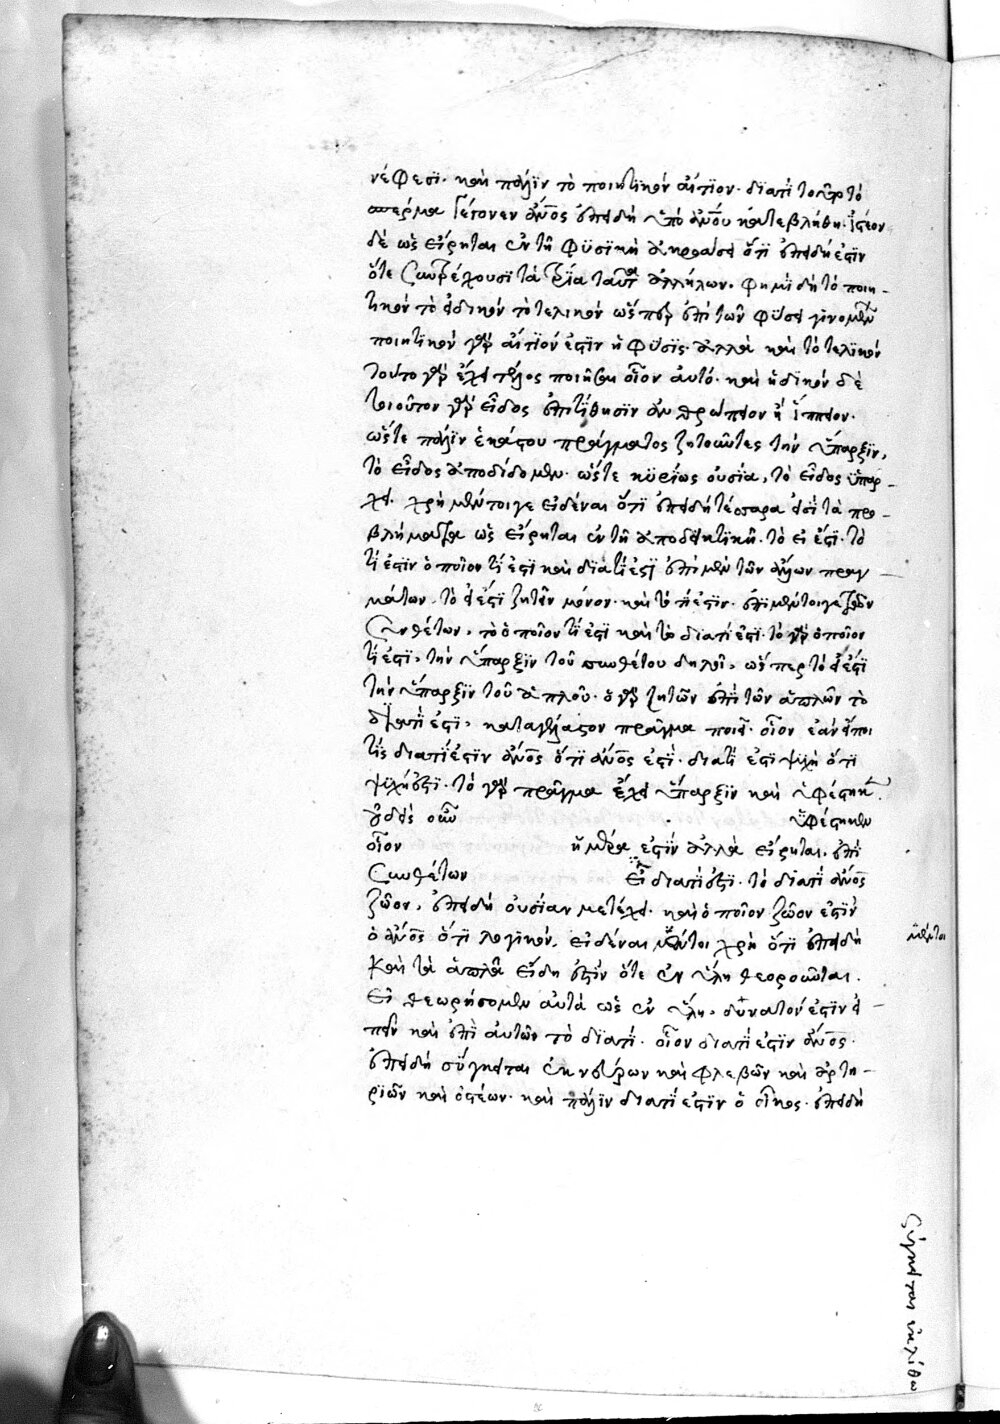 νέφεσϊ· καὶ πάλϊν τὸ ποιητϊκὸν αἴτϊον· δϊατί τουτὶ τὸ
σπέρμα γέγονεν ἄνος ἐπειδὴ ὑπὸ ἀνου κατεβλήθη· ἰστέον
δὲ ὡς εἴρηται ἐν τῆ φϋσϊκῆ ἀκροάσει ὅτϊ ἐπειδή ἐστϊν
ὅτε συντρέχουσϊ τὰ τρία ταῦτα ἀλλήλων· φημὶ δὴ τὸ ποιη-
τικὸν τὸ εἰδικὸν τὸ τελικὸν ὥσπερ ἐπὶ τῶν φύσει γινομένων
ποιητϊκὸν γὰρ αἴτϊόν ἐστϊν ἡ φύσϊς· ἀλλὰ καὶ τὸ τελϊκὸν
τοῦτο γὰρ ἔχει τέλος ποιῆσαι οἷον αὐτό· καὶ εἰδικὸν δὲ
τοιοῦτον γὰρ εἶδος ἐπιτίθησϊν ἀνθρώπειον ἢ ἵππειον·
ὥστε πάλϊν ἑκάστου πράγματος ζητοῦντες τὴν ὕπαρξϊν,
τὸ εἶδος ἀποδίδομεν· ὥστε κϋρίως οὐσία, τὸ εἶδος ὑπάρ-
χει· χρὴ μέντοιγε εἰδέναι ὅτϊ ἐπειδὴ τέσσαρα εἰσὶ τὰ προ-
βλήματα ὡς εἴρηται ἐν τῆ ἀποδεικτϊκῆ· τὸ εἰ ἔστϊ· τὸ
τί ἐστϊν ὁποῖον τί ἐστϊ καὶ δϊατί ἐστϊ ἐπὶ μὲν τῶν ἁπλῶν πραγ-
μάτων· τὸ εἰ ἔστϊ ζητεῖν μόνον· καὶ τὸ τί ἐστϊν· ἐπὶ μέντοιγε τῶν
συνθέτων, τὸ ὁποῖον τί ἐστϊ καὶ τὸ δϊατί ἐστϊ· τὸ γὰρ ὁποῖον
τί ἐστϊ, τὴν ὕπαρξϊν τοῦ συνθέτου δηλοῖ, ὥσπερ τὸ εἰ ἔστϊ
τὴν ὕπαρξϊν τοῦ ἁπλοῦ· ὁ γὰρ ζητῶν ἐπὶ τῶν ἁπλῶν τὸ
δϊατί ἐστϊ, καταγέλαστον πρᾶγμα ποιεῖ· οἷον ἐὰν εἴποι
τίς διατί ἐστϊν ἄνος ὅτϊ ἄνος ἐστί· διατί ἐστϊ ψϋχὴ ὅτϊ
ψϋχή ἐστϊ· τὸ γὰρ πρᾶγμα ἔχει ὕπαρξϊν καὶ ὑφέστηκε·
οὐδεὶς οὖν ὑφέστηκεν
οἷον ἡμέρα ἐστίν ἀλλὰ εἴρηται· ἐπὶ
συνθέτων ἐστὶ διατί ἐστϊ· τὸ διατί ἄνος
ζῶον, ἐπειδὴ οὐσίαν μετέχει· καὶ ὁποῖον ζῶον ἐστϊν
ὁ ἄνος ὅτι λογϊκόν· εἰδέναι μέντοι χρὴ ὅτϊ ἐπειδὴ
καὶ τὰ ἁπλᾶ εἴδη ἐστϊν ὅτε ἐν ὕλη θεοροῦνται·
εἰ θεωρήσομεν αὐτὰ ὡς ἐν ὕλη, δυνατόν ἐστϊν εἰ-
πεῖν καὶ ἐπὶ αὐτῶν τὸ δϊατί· οἷον διατί ἐστϊν ἄνος·
ἐπειδὴ σύγκειται ἐκ νεύρων καὶ φλεβῶν καὶ ἀρτη-
ρϊῶν καὶ ὀστέων· καὶ πάλϊν διατί ἐστϊν ὁ οἶκος· ἐπειδὴ
μέντοι
σύγκειται ἐκ λίθων